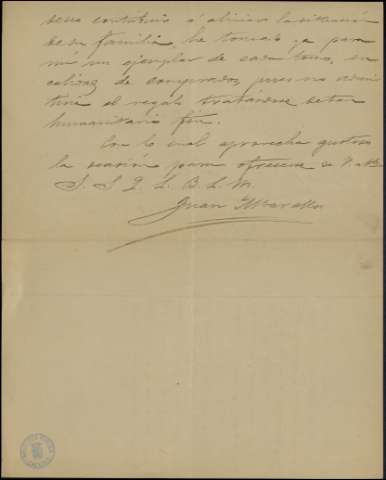 deseo contribuir á aliviar la situación
de su familia, he tomado ya para
mi un ejemplar de cada tomo, en
calidad de comprador, pues no admi
tiré el regalo tratándose de tan
humanitario fin.
Con lo cual aprovecha gustoso
la ocasión para ofrecerse de V. atto
S. S. Q. L. B. L. M.
Juan